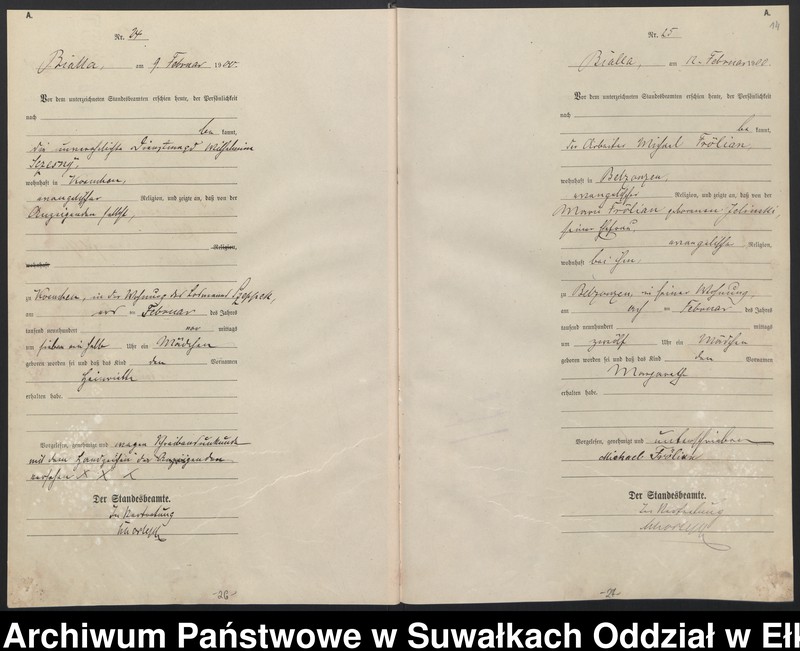 A.
Nr. 24
Bialla, am 9. Februar 1900.
Vor dem unterzeichneten Standesbeamten erschien heute, der Persönlichkeit
nach
be kannt,
die unverehelichte Dienstmagd Wilhelmine
wohnhaft in
evangelischer Religion, und zeigte an, daß von der
Anzeigenden selbst,
Religion,
wohnhaft
zu in der Wohnung des Losmanns
am Februar des Jahres
tausend neunhundert vor mittags
um sieben ein halb Uhr ein Mädchen
geboren worden sei und daß das Kind den Vornamen
Heinriette
erhalten habe.
Vorgelesen, genehmigt und wegen Schreibensunkunde
mit dem Handzeichen der Anzeigenden
versehen X X X
Der Standesbeamte.
In Vertretung
-26-
A.
14
Nr. 25
Bialla, am 12. Februar 1900.
Vor dem unterzeichneten Standesbeamten erschien heute, der Persönlichkeit
nach
be kannt,
der Arbeiter Michael Frölian,
wohnhaft in Belzonzen,
evangelischer Religion, und zeigte an, daß von der
Marie Frölian geborenen
seiner Ehefrau,
evangelische Religion,
wohnhaft bei ihm
zu Belzonzen, in seiner Wohnung,
am Februar des Jahres
tausend neunhundert mittags
um zwölf Uhr ein Mädchen
geboren worden sei und daß das Kind den Vornamen
Margareth
erhalten habe.
Vorgelesen, genehmigt und unterschrieben
Michael Frölian
Der Standesbeamte.
In Vertretung
Archiwum Państwowe w Suwałkach Oddział w Ełk